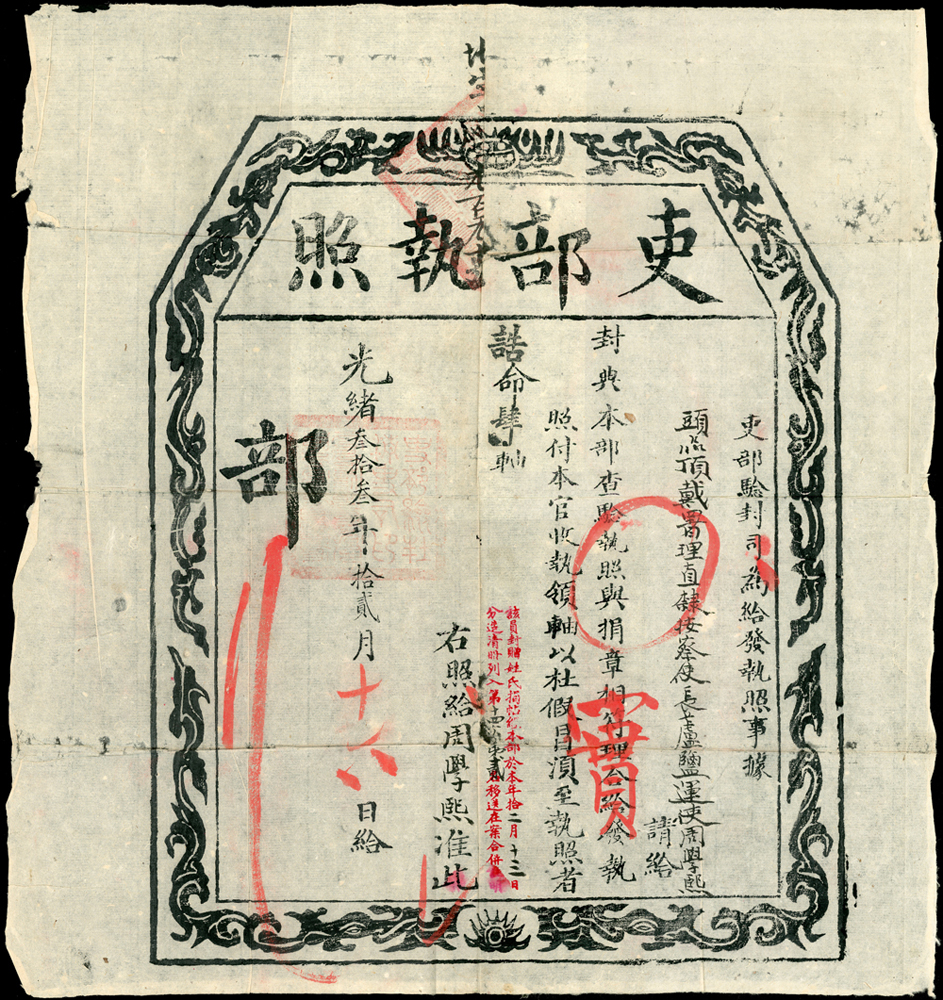 吏部執照
吏部驗封司為給發執照事據
頭品頂戴署理直隸按察使長蘆鹽運使周學熙
請給
封典本部查驗執照與捐章相符理合給發執
照付本官收執領軸以杜假冒須至執照者
誥命肆軸
該員封贈姓氏捐帖經本部於本年拾二月十三日
分造清冊列入第十四移送在案合併
右照給周學熙准此
光緒叁拾叁年拾貳月十六日給
部
實